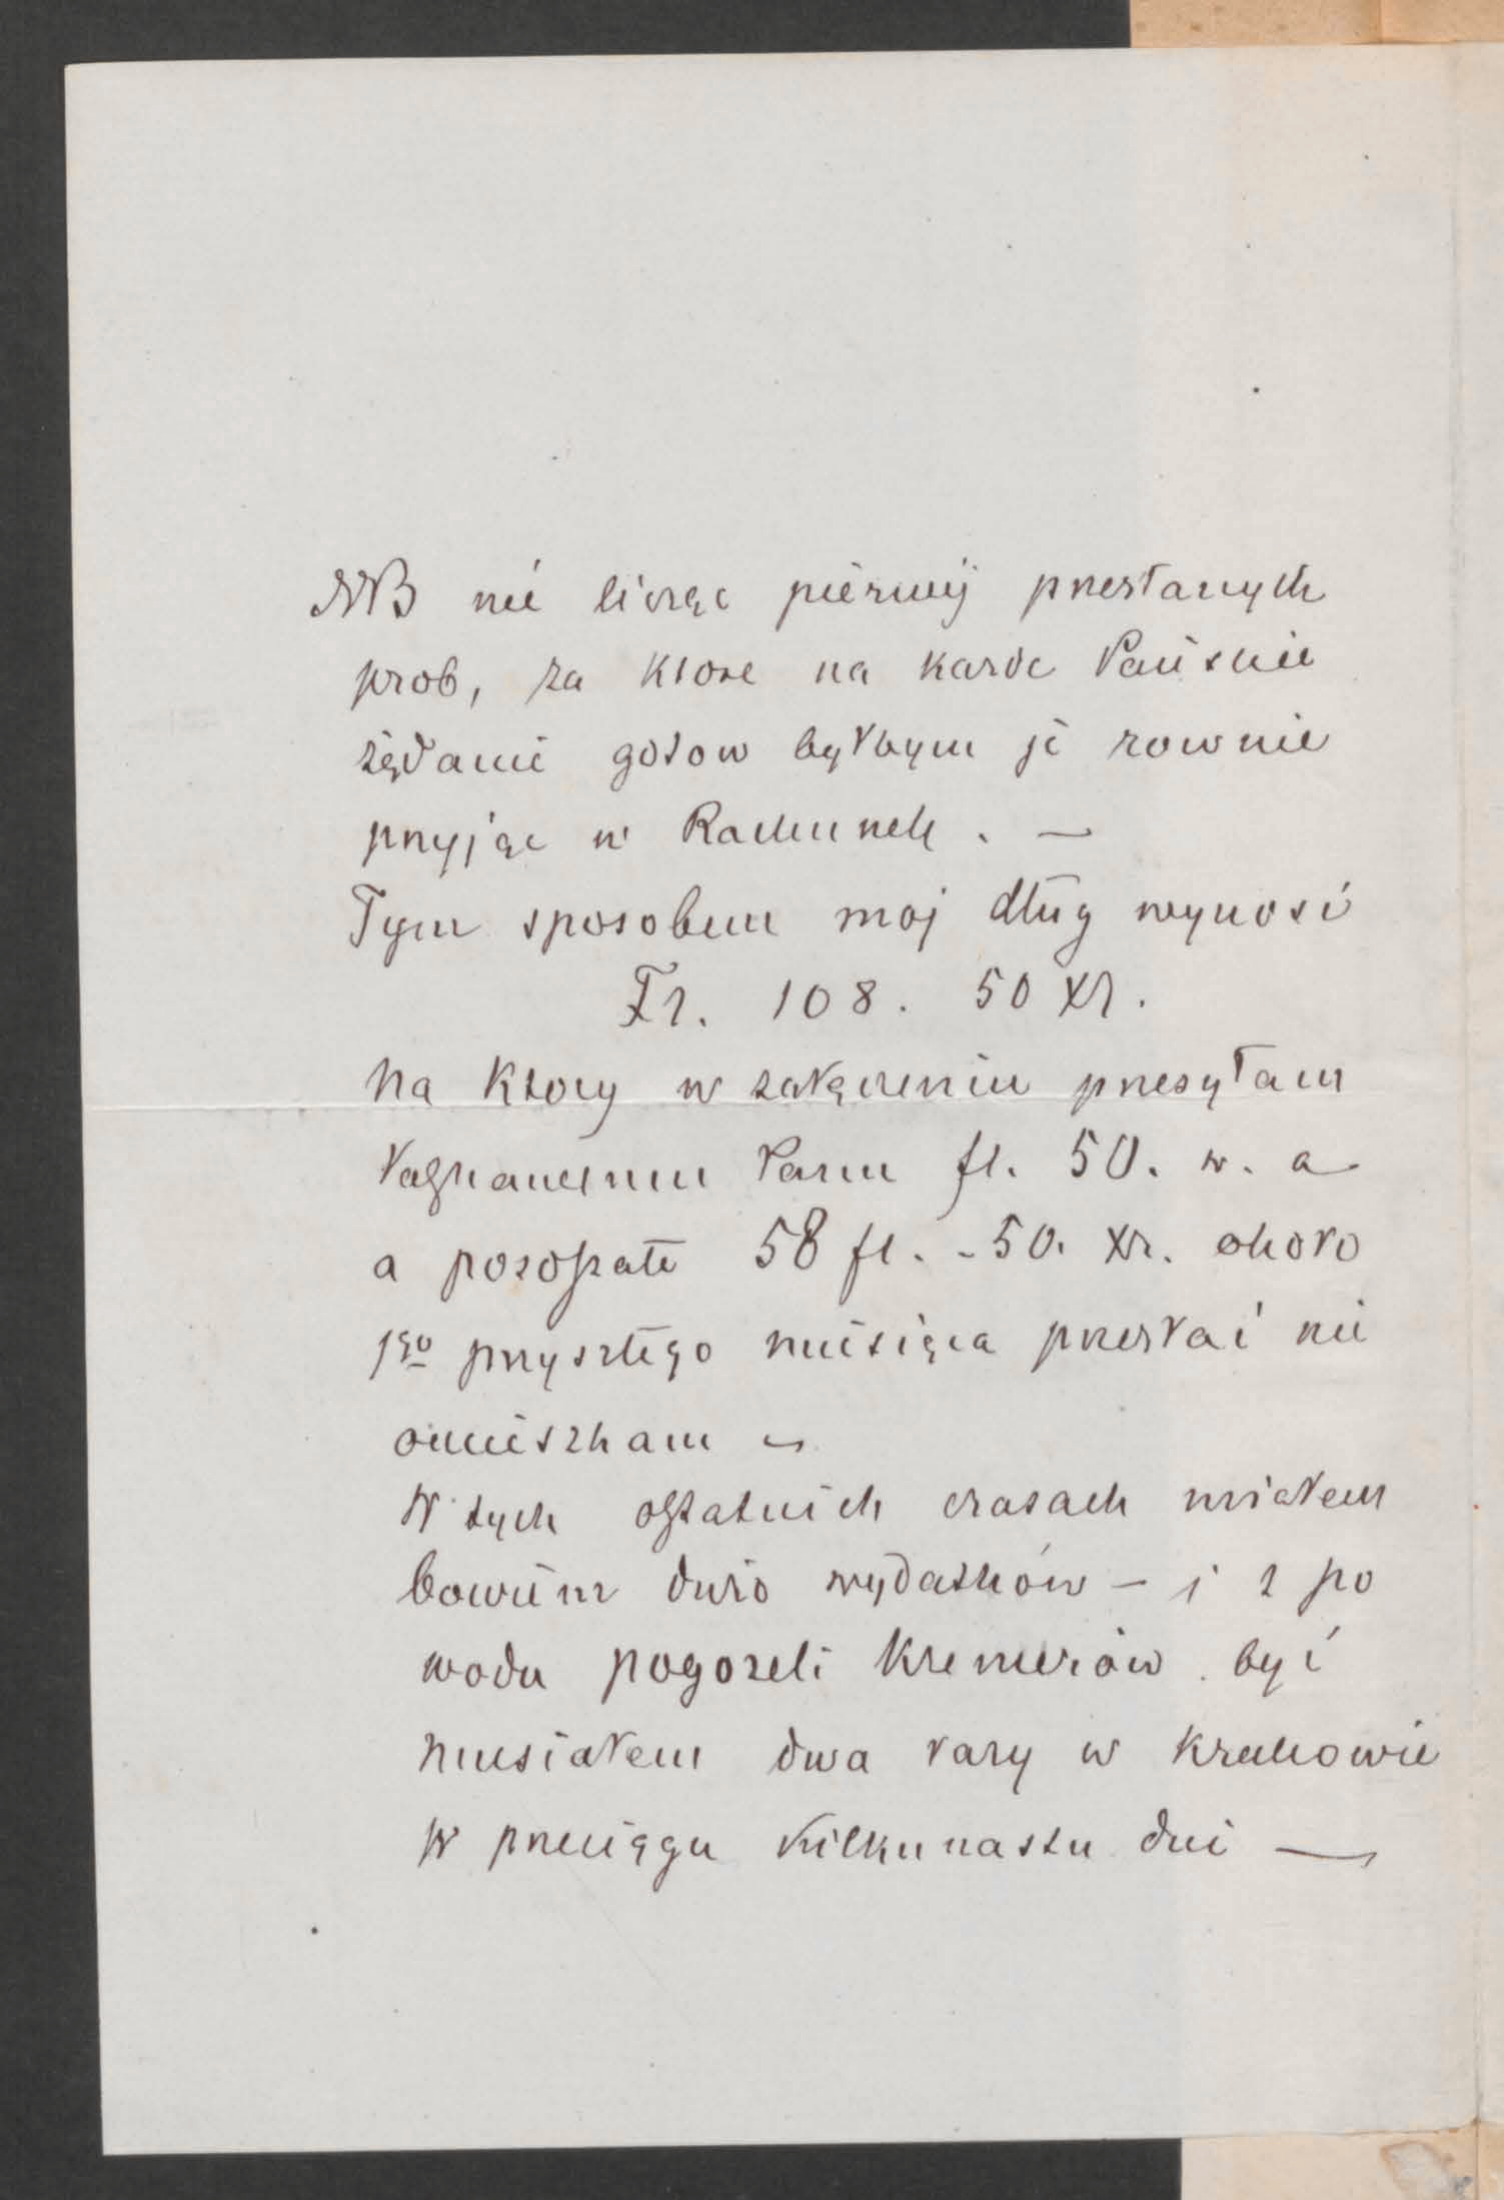 NB nie licząc pierwej przesłanych
prob, za ktore na każde Pańskie
żądanie gotow byłbym je rownie
przyjąc w Rachunek. —
Tym sposobem moj dług wynosi
Fr. 108. 50 xr.
na ktory w załączeniu przesyłam
Panu fl. 50. w. a
a pozostałe 58 fl. - 50. xr. około
1go przyszłego miesiąca przesłać nie
omieszkam —
W tych ostatnich czasach miałem
bowiem dużo wydatków — i z po
wodu pogorzeli Kremerów być
musiałem dwa razy w Krakowie
w przeciągu kilkunastu dni —